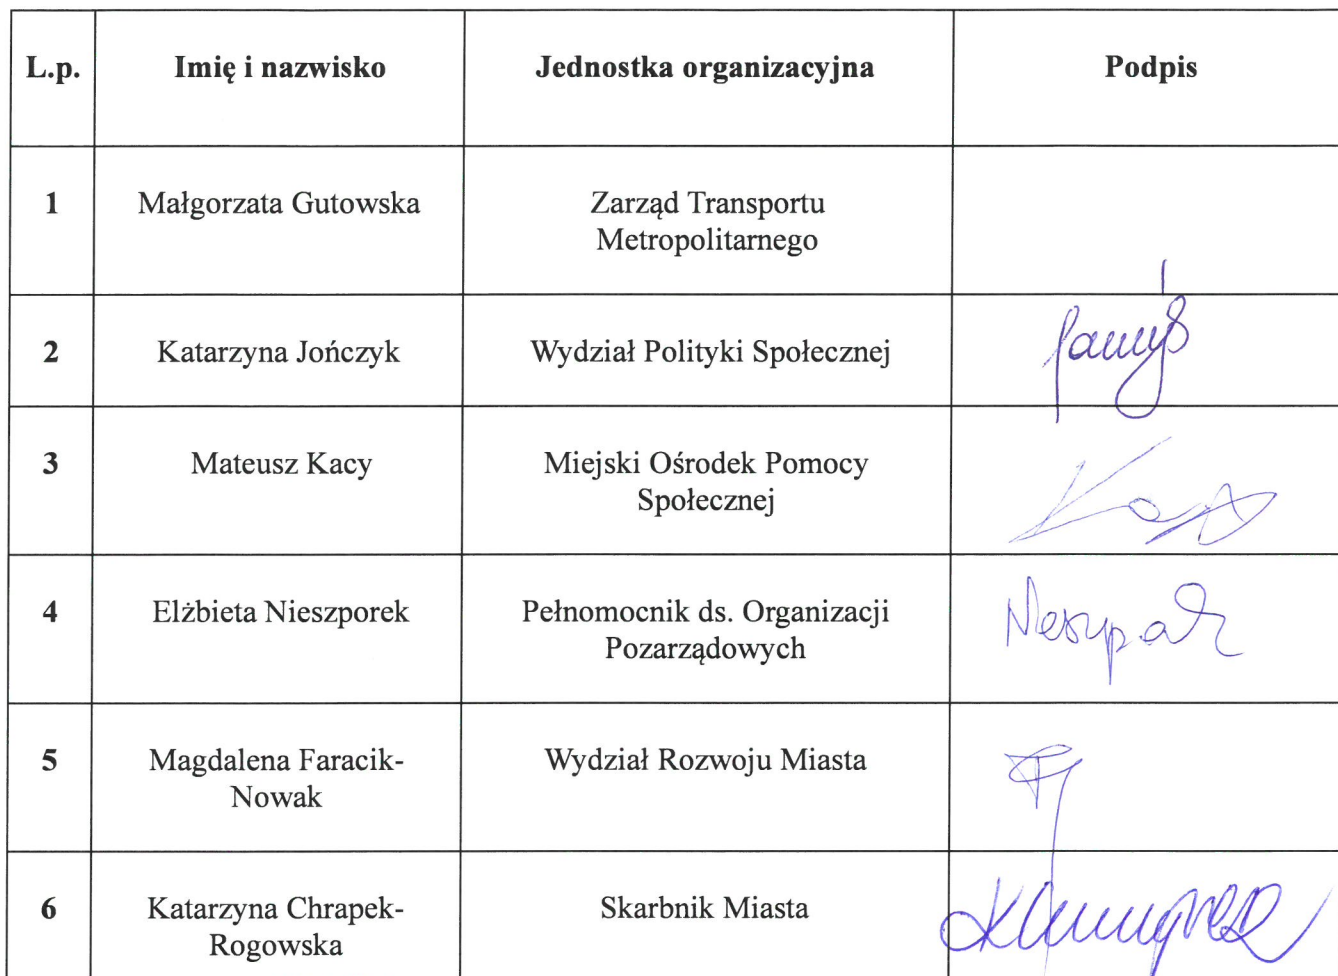 L.p. Imię i nazwisko Jednostka organizacyjna Podpis
1 Małgorzata Gutowska Zarząd Transportu
Metropolitarnego
2 Katarzyna Jończyk Wydział Polityki Społecznej
3 Mateusz Kacy Miejski Ośrodek Pomocy
Społecznej
4 Elżbieta Nieszporek Pełnomocnik ds. Organizacji
Pozarządowych
5 Magdalena Faracik- Wydział Rozwoju Miasta
Nowak
6 Katarzyna Chrapek- Skarbnik Miasta
Rogowska